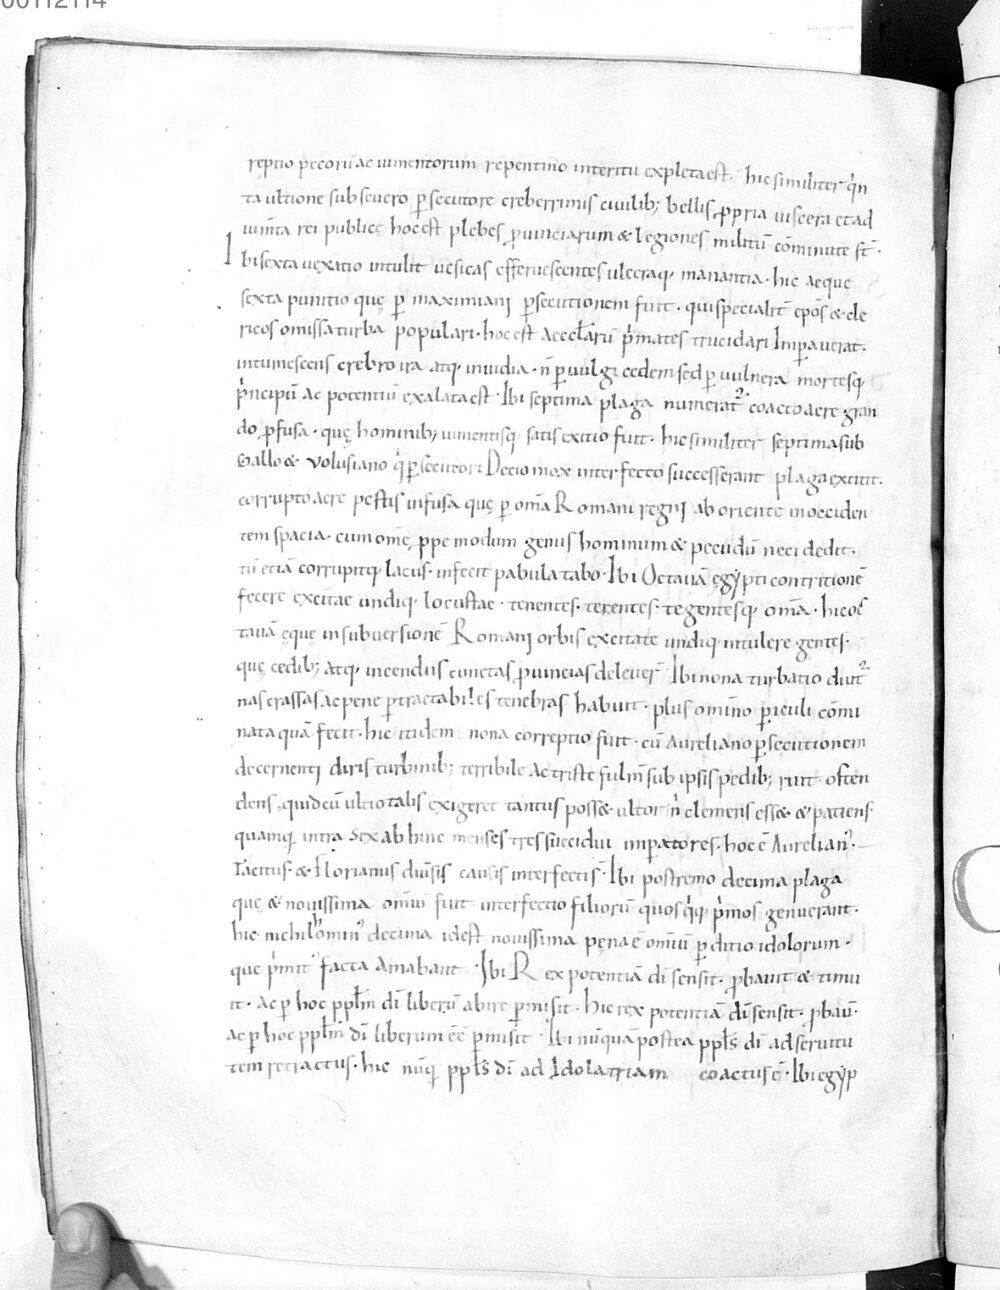 00112114
reptio pecorū ac iumentorum repentino interitu expleta est. hic similiter q̇n
ta ultione sub seuero ꝑsecutore creberrimis ciuilib; bellis ꝓpria uiscera et ad
iuncta rei publicę hoc est plebes ꝓuinciarum & legiones militū cōminute st̄.
Ibi sexta uexatio intulit uesicas efferuescentes ulceraq; manantia. hic aeque
sexta punitio quę ꝑ maximiani ꝑsecutionem fuit. qui specialit̄ ep̄os & cle
ricos omissa turba populari. hoc est aeccl̄arū p̓mates trucidari Imꝑauerat.
intumescens crebro ira atq; inuidia. n̄ ꝑ uulgi cedem sed ꝑ uulnera mortesq;
p̓ncipū ac potentiū exalata est. Ibi septima plaga numerat᷑ coacto aere gran
do ꝓfusa. quę hominib; iumentisq; satis exitio fuit. hic similiter septima sub
Gallo & Volusiano q̓ ꝑsecutori Decio mox interfecto successerant plaga extitit.
corrupto aere pestis infusa quę ꝑ om̄a Romani regni ab oriente in occiden
tem spacia. cum om̄e ꝓpe modum genus hominum & pecudū neci dedit.
tū etiā corrupitq; lacus. infecit pabula tabo. Ibi Octauā ęgypti contritionē
fecere excitae undiq; locustae. tenentes. terentes. tegentesq; om̄a. hic oc
tauā ęque in subuersionē Romani orbis excitate undiq; intulere gentes.
quę cedib; atq; incendiis cunctas ꝓuincias deleuer̄. Ibi nona turbatio diut᷑
nas crassas ac pene ꝑtractabiles tenebras habuit. plus omīno ꝑiculi cōmi
nata quā fecit. hic itidem nona correptio fuit. cū Aureliano ꝑsecutionem
decernenti diris turbinib; terribile ac triste fulm̄ sub ipsis pedib; ruit. osten
dens quid cū ultio talis exigeret tantus poss& ultor n̓ clemens ess& & patiens
quamq; intra sex ab hinc menses tres succidui imꝑatores. hoc ē Aurelian᷒.
Tacitus. & Florianus diu̅sis causis interfecti s̄. Ibi postremo decima plaga
quę & nouissima om̄iū fuit interfectio filiorū quos q̓q; p̓mos genuerant.
hic nichilhomin᷒ decima idest nouissima pęna ē om̄iū ꝑditio idolorum.
que p̓mit᷒ facta amabant. Ibi Rex potentiā di̅ sensit. ꝓbauit & timu
it. ac ꝑ hoc ppl̄m di̅ liberū abire ꝑmisit. hic rex potentiā di̅ sensit. ꝓbau̅.
ac ꝑ hoc ppl̄m di̅ liberum eē ꝑmisit. Ibi nūquā postea ppl̄s di̅ ad seruitu
tem retractus. hic nūq̄ ppl̄s di̅ ad Idolatriam coactus ē. Ibi egyp